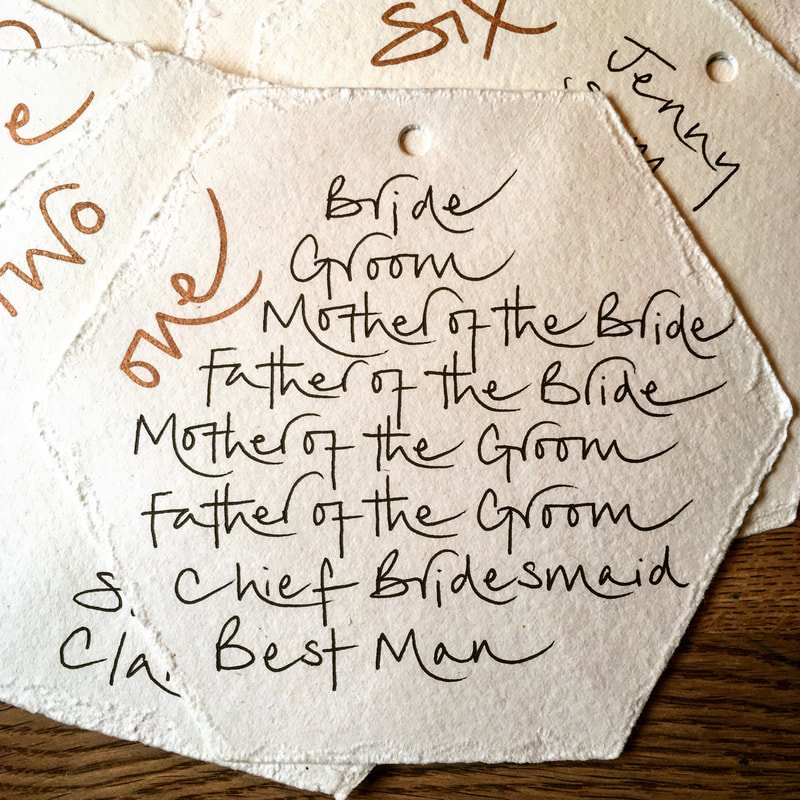 six
Jenny
two
one
Bride
Groom
Mother of the Bride
Father of the Bride
Mother of the Groom
Father of the Groom
Chief Bridesmaid
Best Man
s.
C/a.